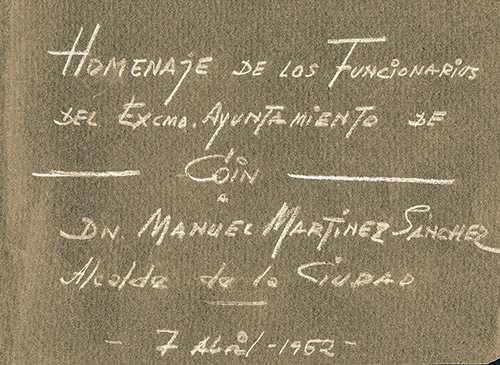 HOMENAJE DE LOS FUNCIONARIOS
DEL EXCMO. AYUNTAMIENTO DE
COÍN
A
DN. MANUEL MARTÍNEZ SÁNCHEZ
Alcalde de la CIUDAD
- 7 Abril - 1962 -